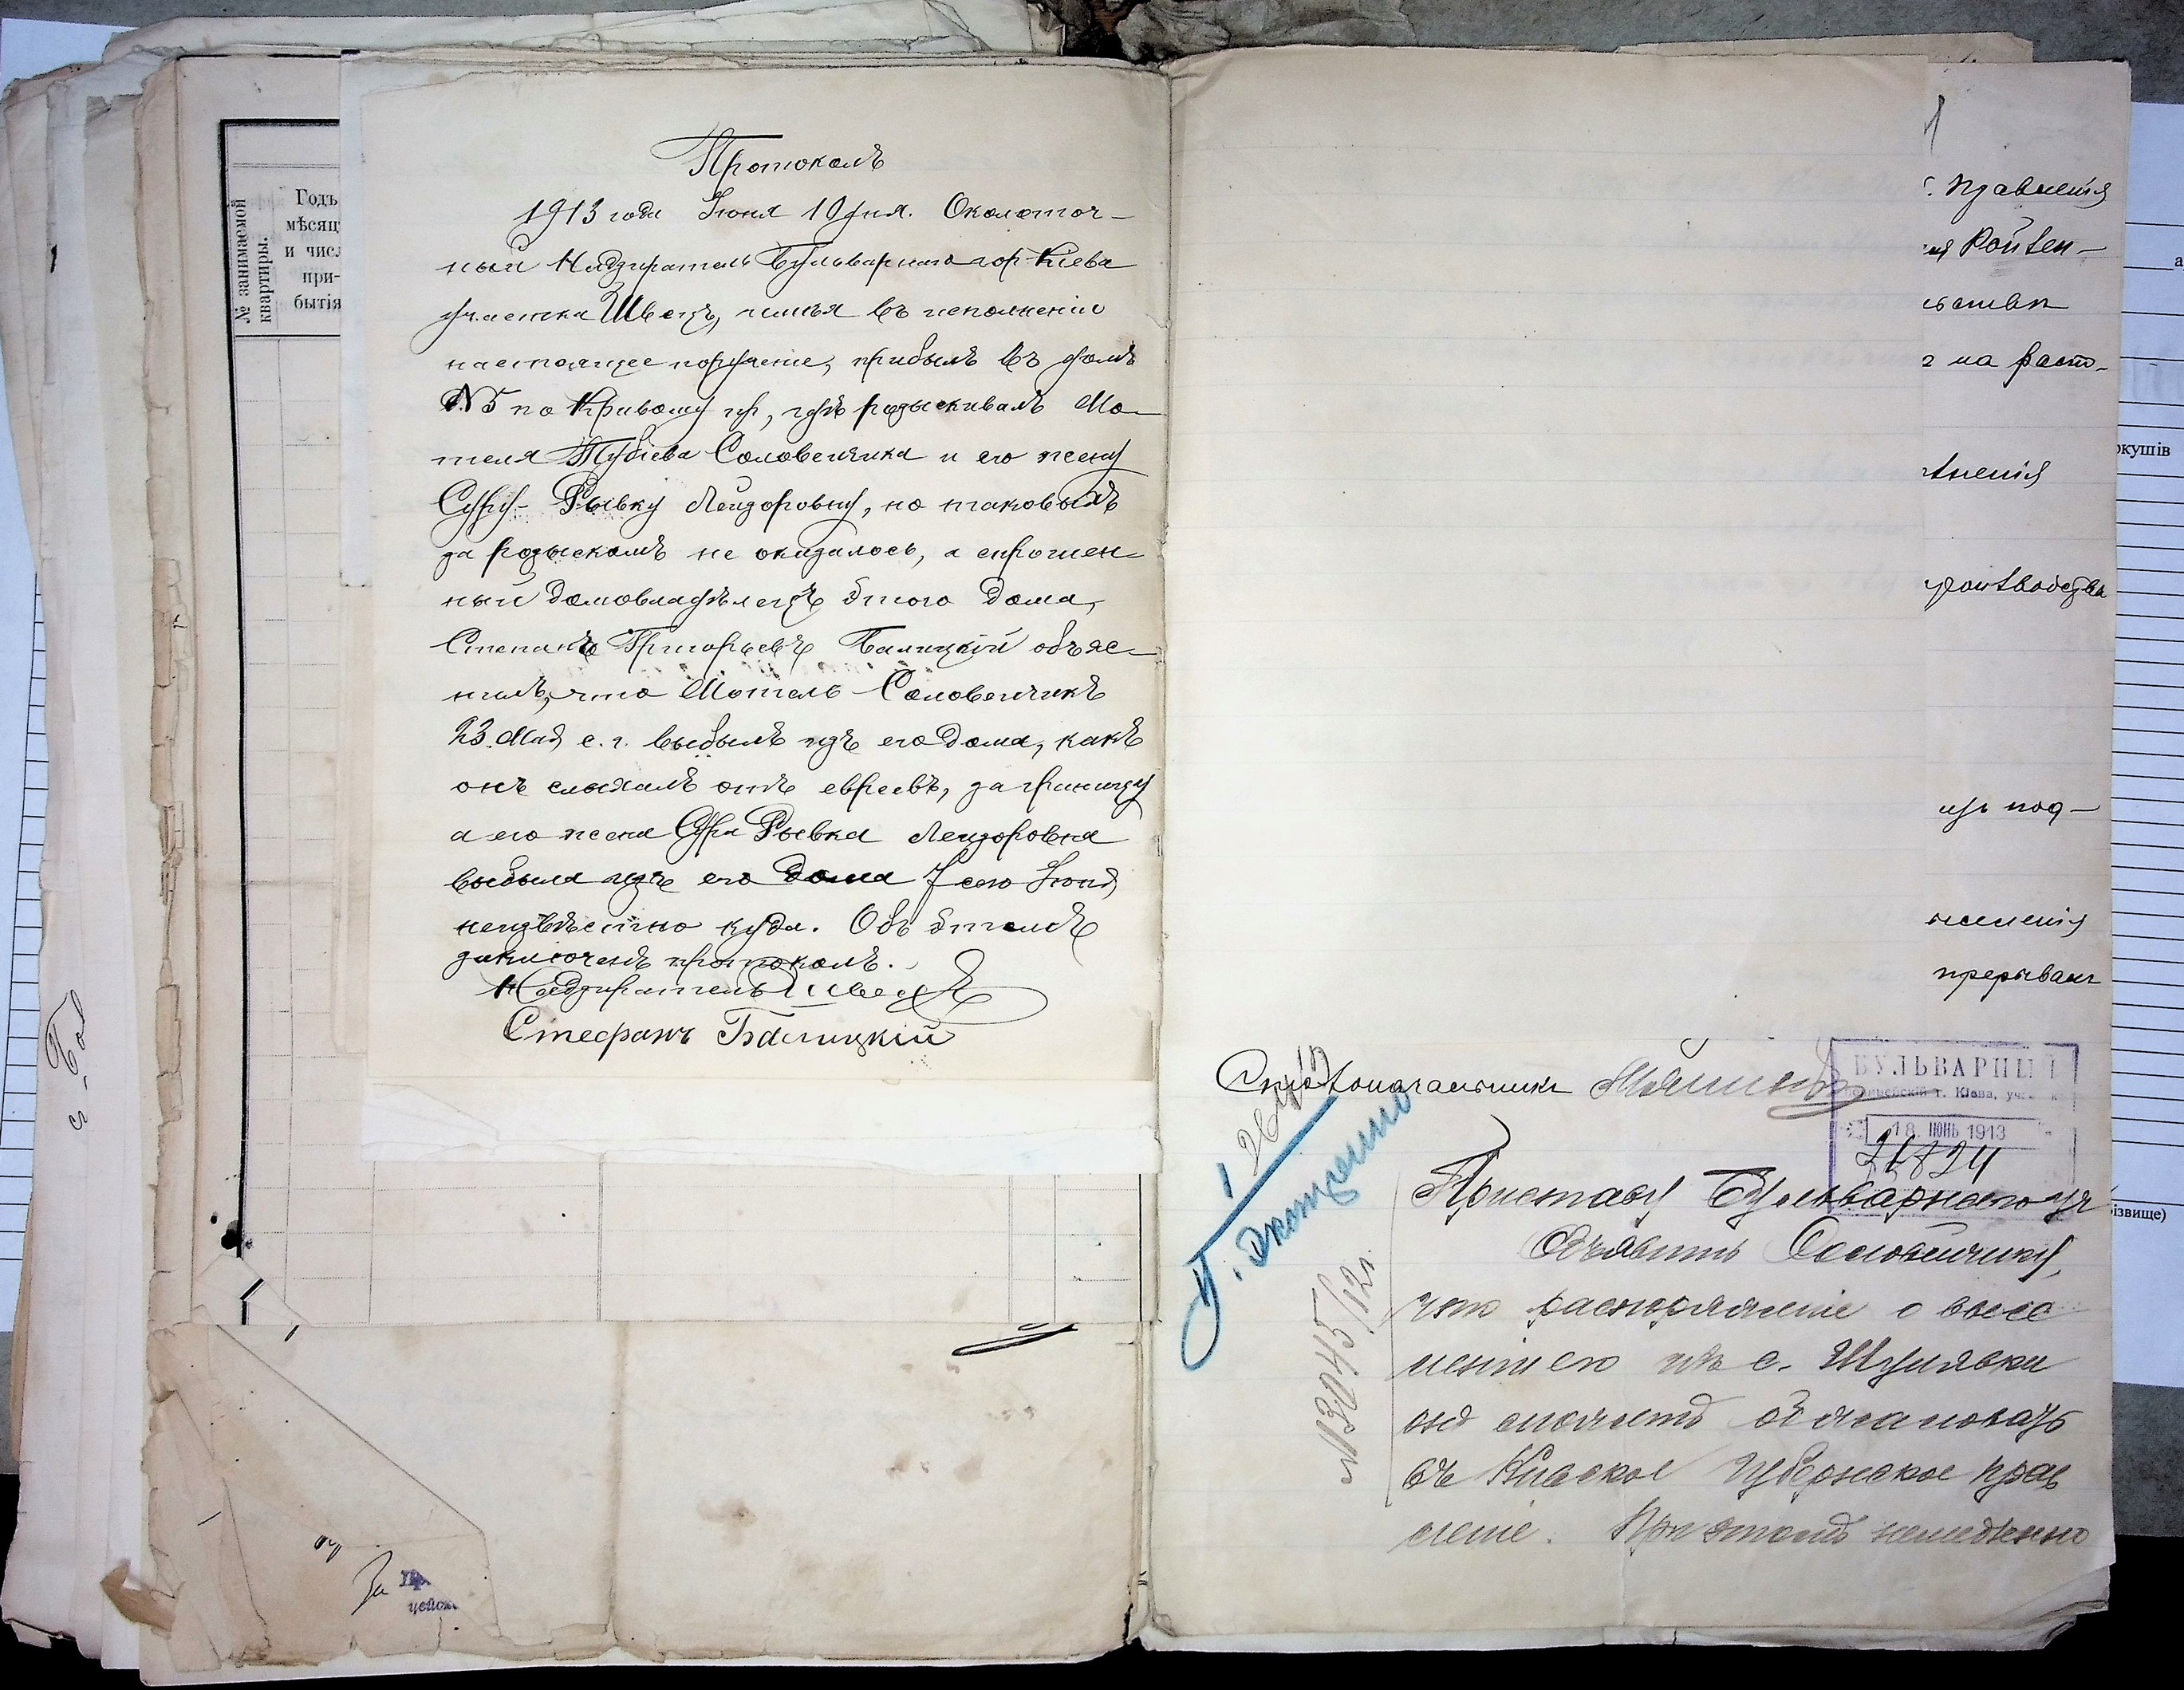 № занимаемой
квартиры.
Годъ
мѣсяц
и чис
при-
бытія
Протоколъ
1913 года Іюня 19 дня. Околоточ-
ный Надзиратель Бульварнаго гор Кіева
участка Швецъ, имѣя въ исполненіи
настоящее порученіе, прибылъ въ домъ
№5 по Кривому пер, гдѣ розыскивалъ Мо-
теля Тубіева Соловейчика и его жену
Суру-Рывку Лейзоровну, но таковыхъ
за розыскомъ не оказалось, а спрошен-
ный домовладѣлецъ этого дома,
Степанъ Григорьевъ Балицкій объяс-
нилъ, что Мотель Соловейчикъ
23 Мая с. г. выбылъ изъ его дома, какъ
онъ слыхалъ отъ евреевъ, за границу
а его жена Сура Рывка Лейзоровна
выбыла изъ его дома 7 сего Іюня,
неизвѣстно куда. Объ этомъ
заключенъ протоколъ.
Надзиратель Швецъ
Стефанъ Балицкій
За
правленія
на раст-
под-
прерыван
кушів
ізвище)
Столоначальникъ
БУЛЬВАРНЫЙ
г. Кіева, уч
18 ІЮНЬ 1913
Приставу Бульварнаго уч
Объявить Соловейчику,
что распоряженіе о высе
леніи его изъ с. Шулявки
онъ можетъ обжаловать
въ Кіевское Губернское прав
леніе. При этомъ немедленно
№13045/12.